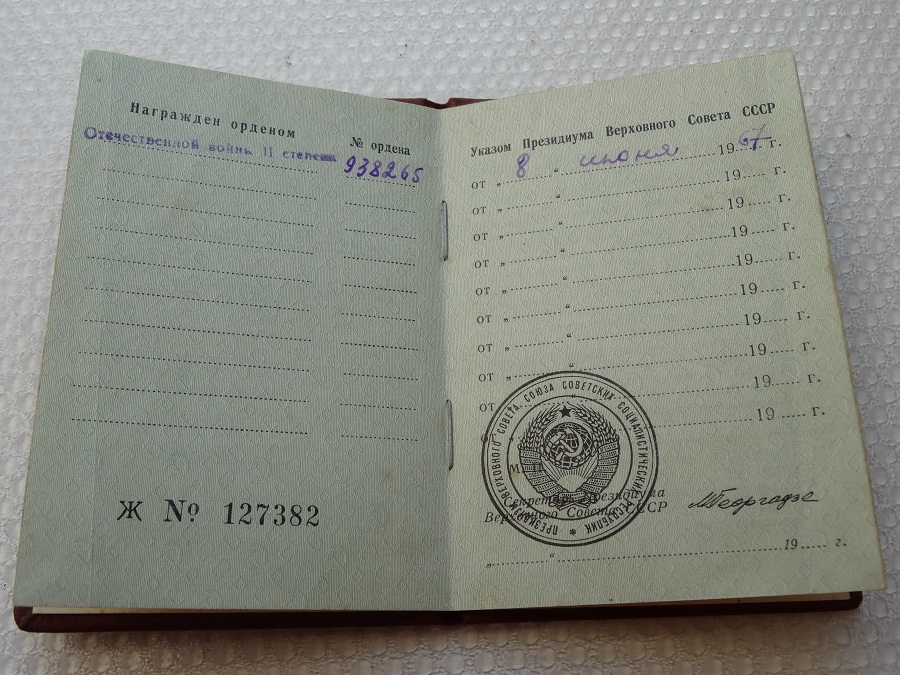 Награжден орденом
№ ордена
Отечественной войны II степени
938265
Ж № 127382
Указом Президиума Верховного Совета СССР
от „ 8 “ июня 1967 г.
от „ “ 19 г.
от „ “ 19 г.
от „ “ 19 г.
от „ “ 19 г.
от „ “ 19 г.
от „ “ 19 г.
от „ “ 19 г.
от „ “ 19 г.
М. П.
ПРЕЗИДИУМ ВЕРХОВНОГО СОВЕТА СОЮЗА СОВЕТСКИХ СОЦИАЛИСТИЧЕСКИХ РЕСПУБЛИК
Секретарь Президиума
Верховного Совета СССР
МГеоргадзе
„ “ 19 г.